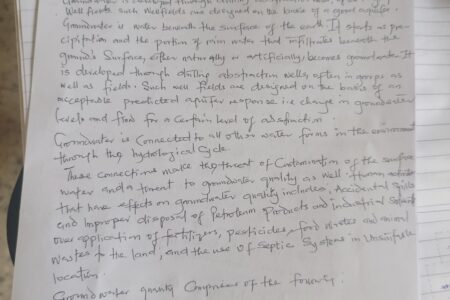 Groundwater is developed through
Well fields such wellfields are designed on the basis of a good aquifer
Groundwater is water beneath the surface of the earth It starts as pre-
cipitation and the portion of rain water that infiltrates beneath the
ground's Surface, either naturally or artificially, becomes groundwater. It
is developed through drilling abstraction wells, often in groups as
well as fields. Such well fields are designed on the basis of an
acceptable predicted aquifer response i.e change in groundwater
levels and flow for a certain level of abstraction
Groundwater is connected to all other water forms in the environment
through the hydrological Cycle.
These connections make the threat of Contamination of the surface
water and a threat to groundwater quality as well. Human activities
that have effects on groundwater quality includes, Accidental spills
and Improper disposal of Petroleum Products and industrial Solvents
Over application of fertilizers, pesticides, food wastes and animal
wastes to the land, and the use of Septic Systems in Unsuitable
location.
Groundwater quality Comprises of the following